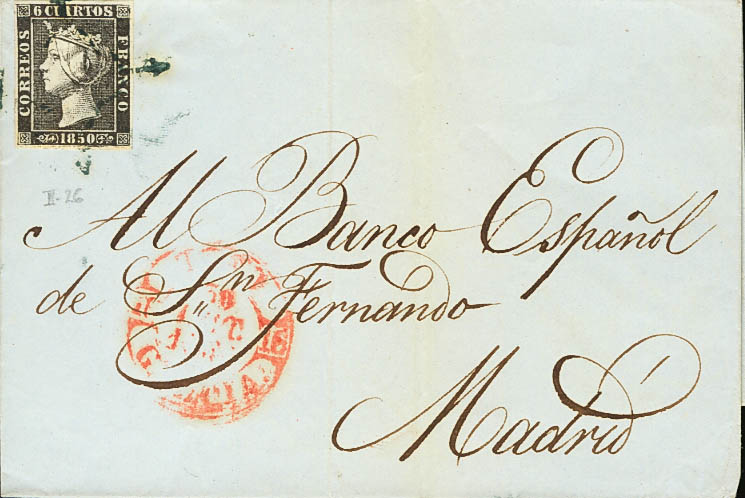 6 CUARTOS
CORREOS
FRANCO
1850
II-26
Al Banco Español
de Sn Fernando
Madrid